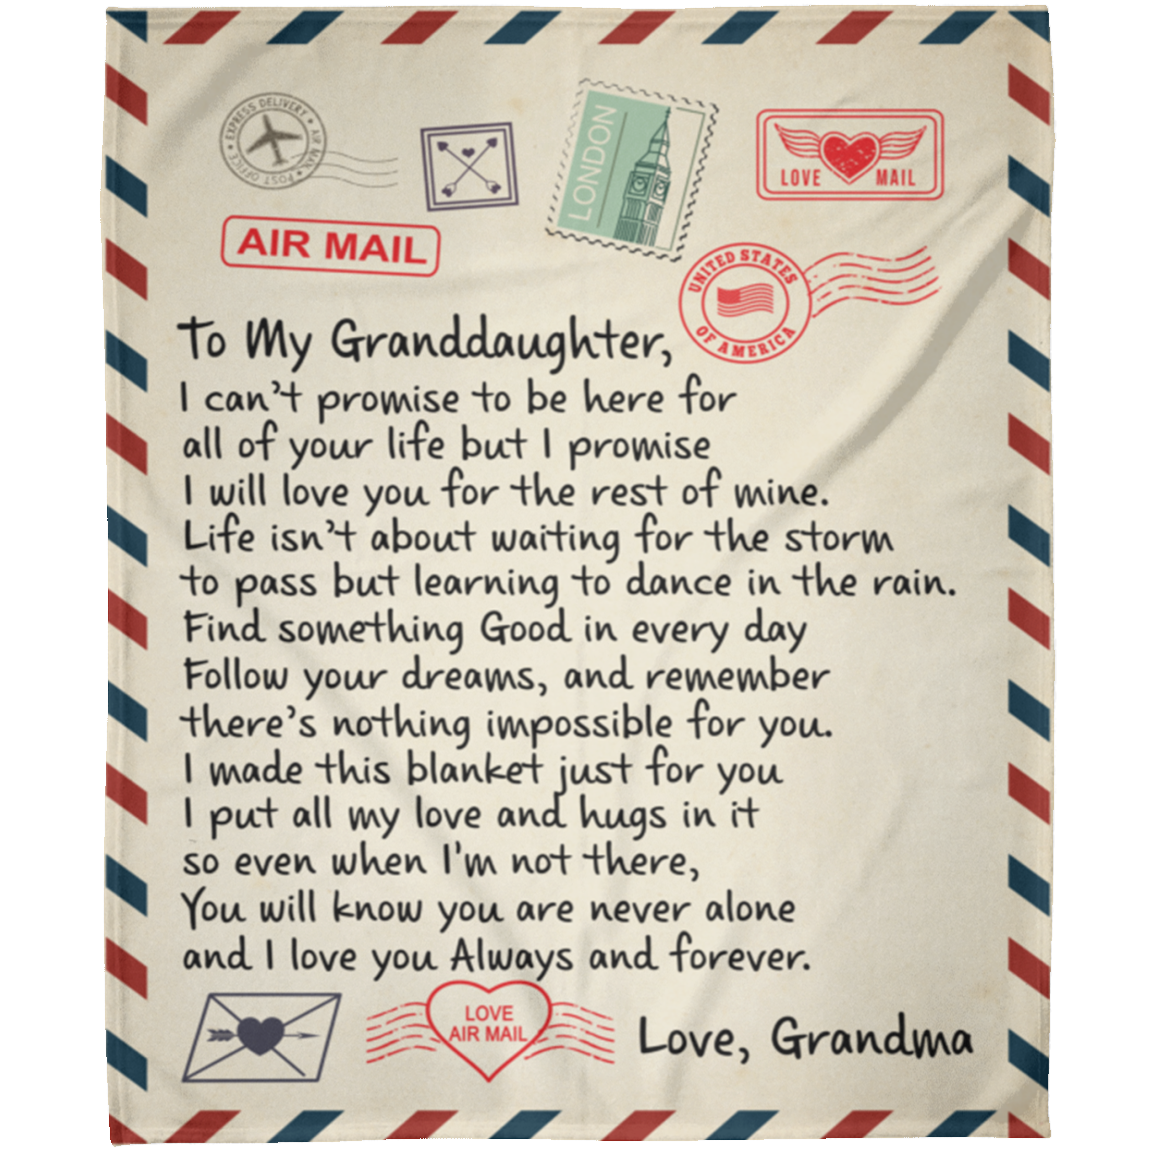 EXPRESS DELIVERY • AIR MAIL • POST OFFICE •
LONDON
LOVE MAIL
AIR MAIL
UNITED STATES
OF AMERICA
To My Granddaughter,
I can't promise to be here for
all of your life but I promise
I will love you for the rest of mine.
Life isn't about waiting for the storm
to pass but learning to dance in the rain.
Find something Good in every day
Follow your dreams, and remember
there's nothing impossible for you.
I made this blanket just for you
I put all my love and hugs in it
so even when I'm not there,
You will know you are never alone
and I love you Always and forever.
LOVE
AIR MAIL
Love, Grandma